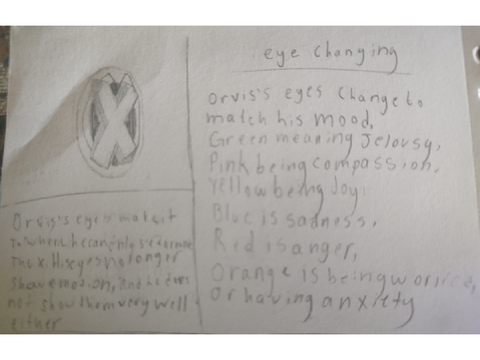 eye Changing
Orvis's eyes Change to
match his mood,
Green meaning Jelousy,
Pink being compassion,
Yellow being Joy,
Blue is sadness,
Red is anger,
Orange is being worrice,
Or having anxiety
Orvis's eyes makes it
to where he can only see
The X. His eyes no longer
show emotion, and he does
not show them very well
either